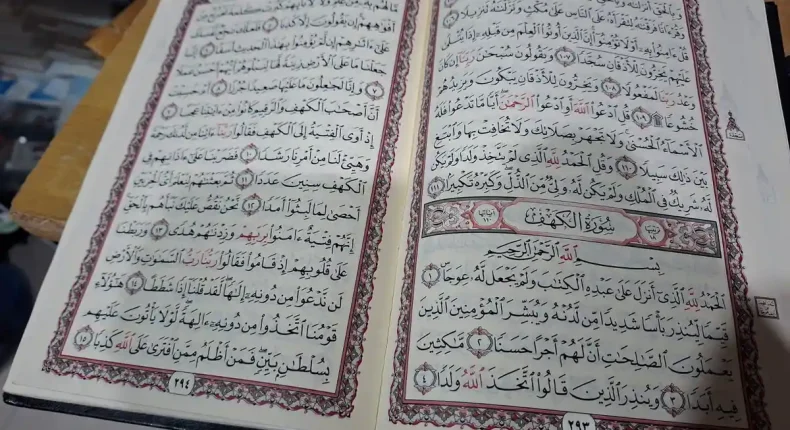 وَبِٱلْحَقِّ أَنزَلْنَٰهُ
وَقُرْءَانًا فَرَقْنَٰهُ لِتَقْرَأَهُۥ عَلَى ٱلنَّاسِ عَلَىٰ مُكْثٍ وَنَزَّلْنَٰهُ تَنزِيلًا
قُلْ ءَامِنُوا۟ بِهِۦٓ أَوْ لَا تُؤْمِنُوٓا۟ إِنَّ ٱلَّذِينَ أُوتُوا۟ ٱلْعِلْمَ مِن قَبْلِهِۦٓ إِذَا يُتْلَىٰ
عَلَيْهِمْ يَخِرُّونَ لِلْأَذْقَانِ سُجَّدًا ١٠٧ وَيَقُولُونَ سُبْحَٰنَ رَبِّنَآ إِن كَانَ
وَعْدُ رَبِّنَا لَمَفْعُولًا ١٠٨ وَيَخِرُّونَ لِلْأَذْقَانِ يَبْكُونَ وَيَزِيدُهُمْ
خُشُوعًا ١٠٩ قُلِ ٱدْعُوا۟ ٱللَّهَ أَوِ ٱدْعُوا۟ ٱلرَّحْمَٰنَ أَيًّا مَّا تَدْعُوا۟ فَلَهُ
ٱلْأَسْمَآءُ ٱلْحُسْنَىٰ وَلَا تَجْهَرْ بِصَلَاتِكَ وَلَا تُخَافِتْ بِهَا وَٱبْتَغِ
بَيْنَ ذَٰلِكَ سَبِيلًا ١١٠ وَقُلِ ٱلْحَمْدُ لِلَّهِ ٱلَّذِى لَمْ يَتَّخِذْ وَلَدًا وَلَمْ يَكُن
لَّهُۥ شَرِيكٌ فِى ٱلْمُلْكِ وَلَمْ يَكُن لَّهُۥ وَلِىٌّ مِّنَ ٱلذُّلِّ وَكَبِّرْهُ تَكْبِيرًا ١١١
سُورَةُ ٱلْكَهْفِ
بِسْمِ ٱللَّهِ ٱلرَّحْمَٰنِ ٱلرَّحِيمِ
ٱلْحَمْدُ لِلَّهِ ٱلَّذِىٓ أَنزَلَ عَلَىٰ عَبْدِهِ ٱلْكِتَٰبَ وَلَمْ يَجْعَل لَّهُۥ عِوَجَا ١
قَيِّمًا لِّيُنذِرَ بَأْسًا شَدِيدًا مِّن لَّدُنْهُ وَيُبَشِّرَ ٱلْمُؤْمِنِينَ ٱلَّذِينَ
يَعْمَلُونَ ٱلصَّٰلِحَٰتِ أَنَّ لَهُمْ أَجْرًا حَسَنًا ٢ مَّٰكِثِينَ
فِيهِ أَبَدًا ٣ وَيُنذِرَ ٱلَّذِينَ قَالُوا۟ ٱتَّخَذَ ٱللَّهُ وَلَدًا ٤
٢٩٣
مَّا لَهُم بِهِۦ مِنْ عِلْمٍ وَلَا لِـَٔابَآئِهِمْ كَبُرَتْ كَلِمَةً تَخْرُجُ مِنْ
أَفْوَٰهِهِمْ إِن يَقُولُونَ إِلَّا كَذِبًا ٥ فَلَعَلَّكَ بَٰخِعٌ نَّفْسَكَ
عَلَىٰٓ ءَاثَٰرِهِمْ إِن لَّمْ يُؤْمِنُوا۟ بِهَٰذَا ٱلْحَدِيثِ أَسَفًا ٦ إِنَّا
جَعَلْنَا مَا عَلَى ٱلْأَرْضِ زِينَةً لَّهَا لِنَبْلُوَهُمْ أَيُّهُمْ أَحْسَنُ عَمَلًا
٧ وَإِنَّا لَجَٰعِلُونَ مَا عَلَيْهَا صَعِيدًا جُرُزًا ٨ أَمْ حَسِبْتَ
أَنَّ أَصْحَٰبَ ٱلْكَهْفِ وَٱلرَّقِيمِ كَانُوا۟ مِنْ ءَايَٰتِنَا عَجَبًا ٩
إِذْ أَوَى ٱلْفِتْيَةُ إِلَى ٱلْكَهْفِ فَقَالُوا۟ رَبَّنَآ ءَاتِنَا مِن لَّدُنكَ رَحْمَةً
وَهَيِّئْ لَنَا مِنْ أَمْرِنَا رَشَدًا ١٠ فَضَرَبْنَا عَلَىٰٓ ءَاذَانِهِمْ فِى
ٱلْكَهْفِ سِنِينَ عَدَدًا ١١ ثُمَّ بَعَثْنَٰهُمْ لِنَعْلَمَ أَىُّ ٱلْحِزْبَيْنِ
أَحْصَىٰ لِمَا لَبِثُوٓا۟ أَمَدًا ١٢ نَّحْنُ نَقُصُّ عَلَيْكَ نَبَأَهُم بِٱلْحَقِّ
إِنَّهُمْ فِتْيَةٌ ءَامَنُوا۟ بِرَبِّهِمْ وَزِدْنَٰهُمْ هُدًى ١٣ وَرَبَطْنَا
عَلَىٰ قُلُوبِهِمْ إِذْ قَامُوا۟ فَقَالُوا۟ رَبُّنَا رَبُّ ٱلسَّمَٰوَٰتِ وَٱلْأَرْضِ
لَن نَّدْعُوَا۟ مِن دُونِهِۦٓ إِلَٰهًا لَّقَدْ قُلْنَآ إِذًا شَطَطًا ١٤ هَٰٓؤُلَآءِ
قَوْمُنَا ٱتَّخَذُوا۟ مِن دُونِهِۦٓ ءَالِهَةً لَّوْلَا يَأْتُونَ عَلَيْهِم
بِسُلْطَٰنٍۭ بَيِّنٍ فَمَنْ أَظْلَمُ مِمَّنِ ٱفْتَرَىٰ عَلَى ٱللَّهِ كَذِبًا ١٥
٢٩٤